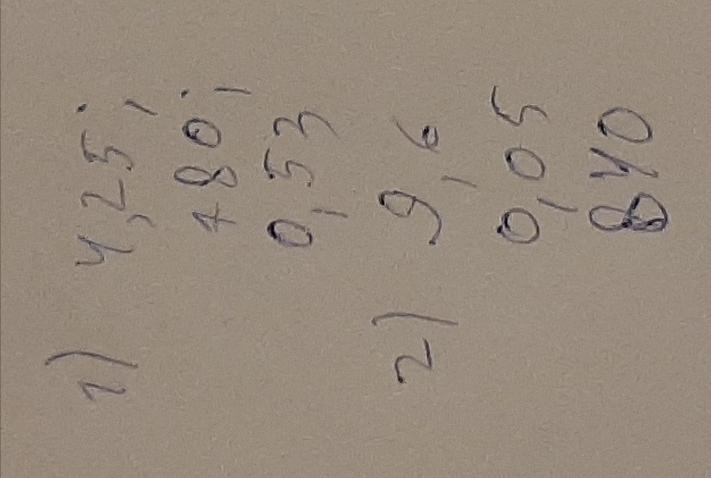 1) 4,25;
780;
0,53
2) 9,6
0,05
840